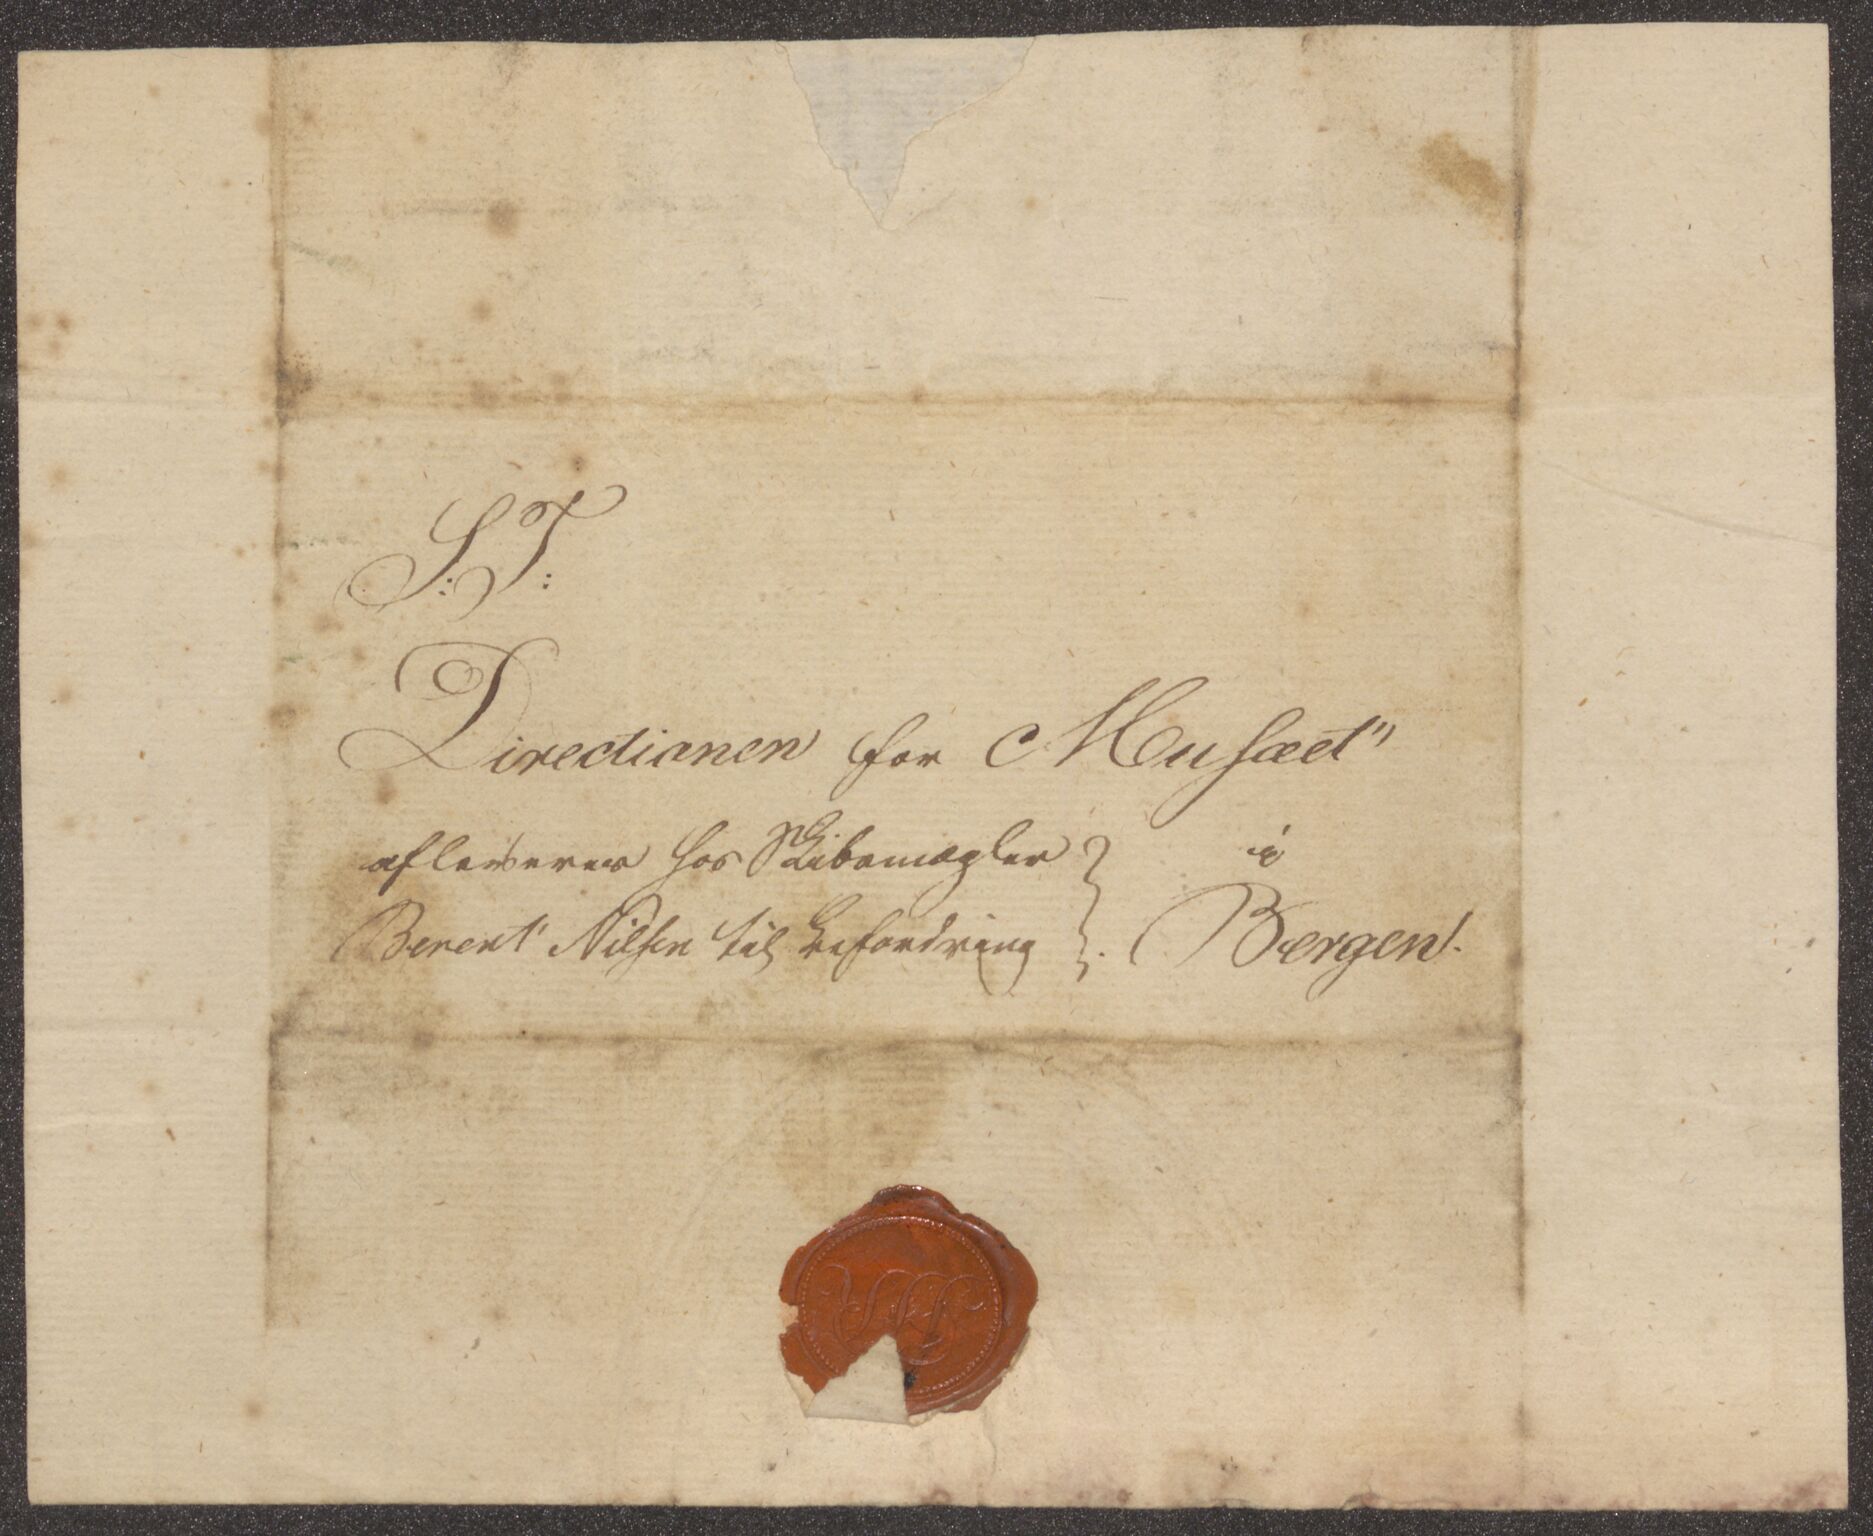 S: T:
Directionen for Musæet
afleveres hos Skibsmægler
Berent Nilsen til Befordring
i
Bergen.